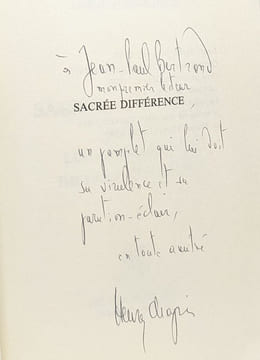 à Jean-Paul Bertrand
mon premier lecteur
SACRÉE DIFFÉRENCE,
un pamphlet qui lui doit
sa virulence et sa
parution-éclair,
en toute amitié
Henry Chapier